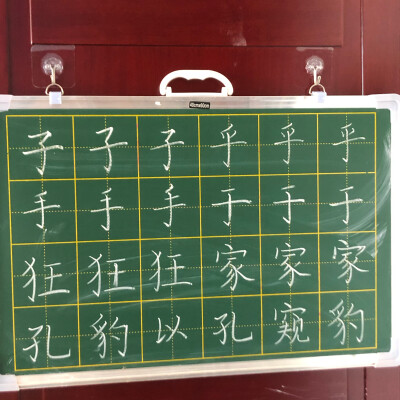 子子子乎乎乎
手手手于于于
狂狂狂家家家
孔豹以孔窥豹